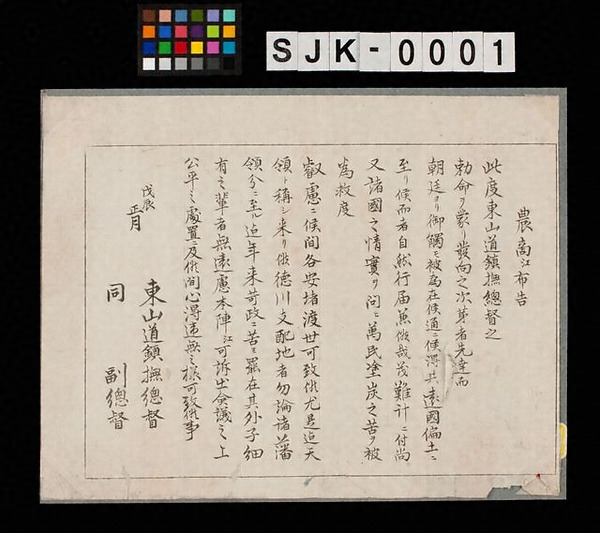 SJK-0001
農商江布告
此度東山道鎮撫總督之
勅命ヲ蒙リ發向之次第者先達而
朝廷ヨリ御觸モ被為在候通ニ候得共遠國偏土ニ
至リ候而者自然行届兼候哉茂難計ニ付尚
又諸國之情實ヲ問ヒ萬民塗炭之苦ヲ被
為救度
叡慮ニ候間各安堵渡世可致候尤是迠天
領ト稱シ来リ候德川支配地者勿論諸藩
領分ニ至ル迠年来苛政ニ苦ミ罷在其外子細
有之輩者無遠慮本陣江可訴出僉議之上
公平之處置ニ及候間心得違無之樣可致候事
戊辰
正月
東山道鎮撫總督
同 副總督